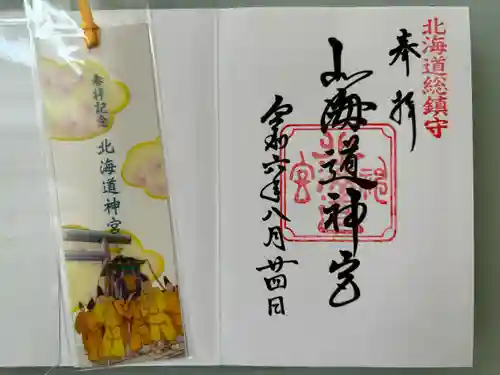 北海道総鎮守
奉拝
北海道神宮
令和六年八月廿四日
奉拝記念
北海道神宮